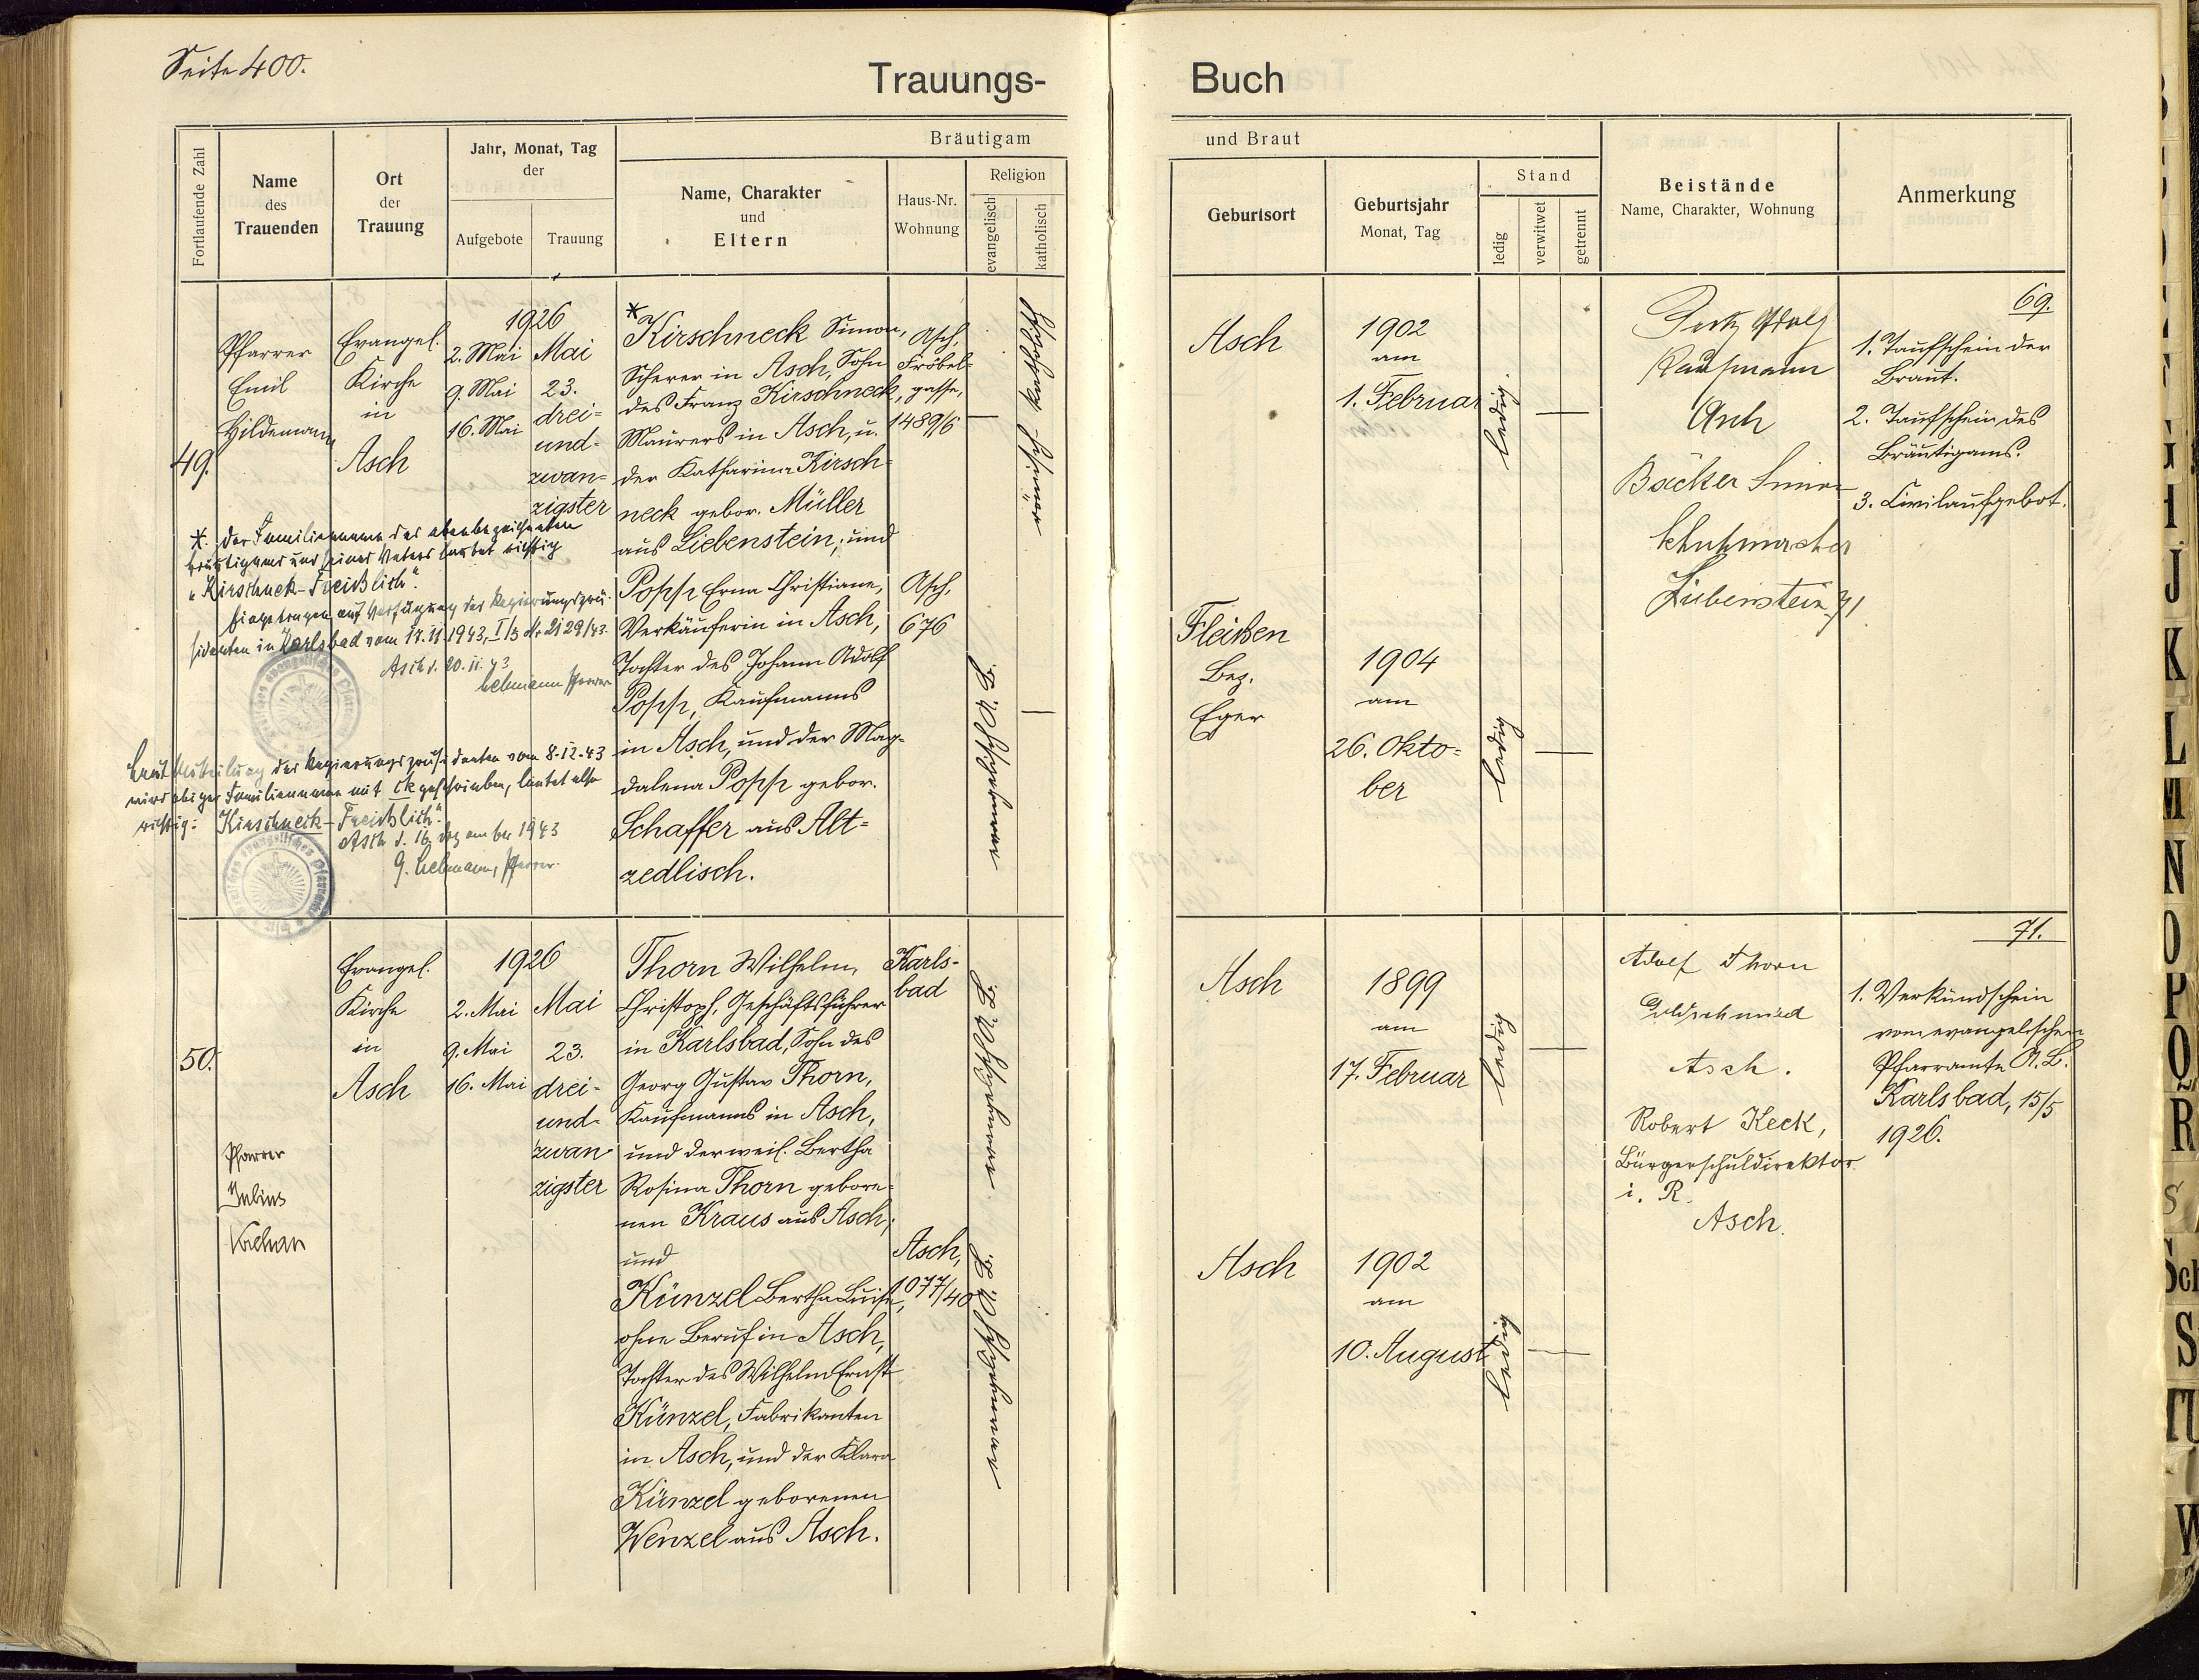 Seite 400.
Trauungs-
Buch
Fortlaufende Zahl
Name
des
Trauenden
Ort
der
Trauung
Jahr, Monat, Tag
der
Aufgebote
Trauung
Bräutigam
Name, Charakter
und
Eltern
Haus-Nr.
Wohnung
Religion
evangelisch
katholisch
und Braut
Geburtsort
Geburtsjahr
Monat, Tag
Stand
ledig
verwitwet
getrennt
Beistände
Name, Charakter, Wohnung
Anmerkung
49.
Pfarrer
Emil
Hildemann
Evangel.
Kirche
in
Asch
1926
2. Mai
9. Mai
16. Mai
Mai
23.
drei=
und-
zwan=
zigster
*
Kirschneck Simon,
Scherer in Asch, Sohn
des Franz Kirschneck,
Maurers in Asch, u.
der Katharina Kirsch=
neck gebor. Müller
aus Liebenstein; und
Popp Erna Christiane,
Verkäuferin in Asch,
Tochter des Johann Adolf
Popp, Kaufmanns
in Asch, und der Mag-
dalena Popp gebor.
Schaffer aus Alt=
zedlisch.
Asch,
Fröbel=
gasse,
1489/6
Asch,
676
römisch-katholisch
evangelisch A. B.
*. Der Familienname des obenbezeichneten
Bräutigams und seines Vaters lautet richtig
"Kirschnek-Freißlich".
Eingetragen auf Verfügung des Regierungsprä-
sidenten in Karlsbad vom 17.11.1943, I/3 Nr 2129/43.
Asch d. 20. 11. 43
Lehmann Pfarrer
Laut Mitteilung des Regierungspräsidenten vom 8.12.43
wird obiger Familienname mit ck geschrieben, lautet also
richtig: Kirschneck-Freißlich".
Asch d. 16. Dezember 1943
G. Lehmann, Pfarrer.
Asch
1902
am
1. Februar
ledig
Fleißen
Bez.
Eger
1904
am
26. Okto=
ber
ledig
Adolf
Kaufmann
Asch
Bäcker Simon
Schuhmacher
Liebenstein 71
69.
1. Taufschein der
Braut.
2. Taufschein des
Bräutigams.
3. Civilaufgebot.
50.
Pfarrer
Julius
Evangel.
Kirche
in
Asch
1926
2. Mai
9. Mai
16. Mai
Mai
23.
drei-
und-
zwan-
zigster
Thorn Wilhelm,
Christoph, Geschäftsführer
in Karlsbad, Sohn des
Georg Gustav Thorn,
Kaufmanns in Asch,
und der weil. Bertha
Rosina Thorn gebore=
nen Kraus aus Asch;
und
Künzel Bertha Luise,
ohne Beruf in Asch,
Tochter des Wilhelm Ernst
Künzel, Fabrikanten
in Asch, und der Klara
Künzel geborenen
Wenzel aus Asch.
Karls-
bad
Asch,
1077/40
evangelisch A. B.
evangelisch A. B.
Asch
1899
am
17. Februar
ledig
Asch
1902
am
10. August
ledig
Adolf Thorn
Goldschmied
Asch.
Robert Keck,
Bürgerschuldirektor
i. R.
Asch.
71.
1. Verkündschein
vom evangelischen
Pfarramte A. B.
Karlsbad, 15/5
1926.